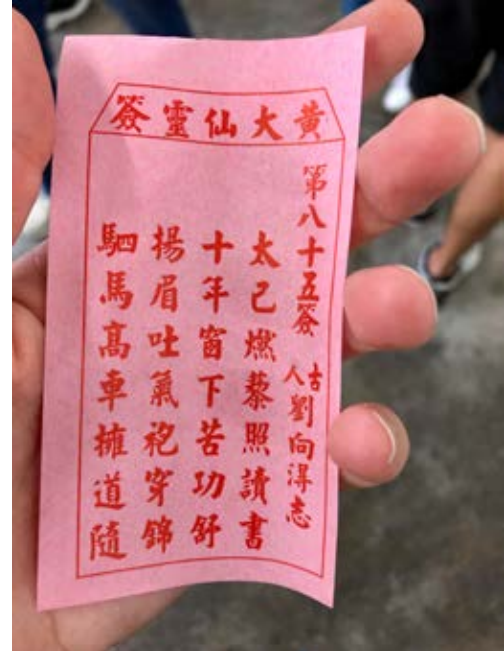 黃大仙靈簽
第八十五簽 古人劉向得志
太乙燃藜照讀書
十年窗下苦功舒
揚眉吐氣袍穿錦
駟馬高車擁道隨